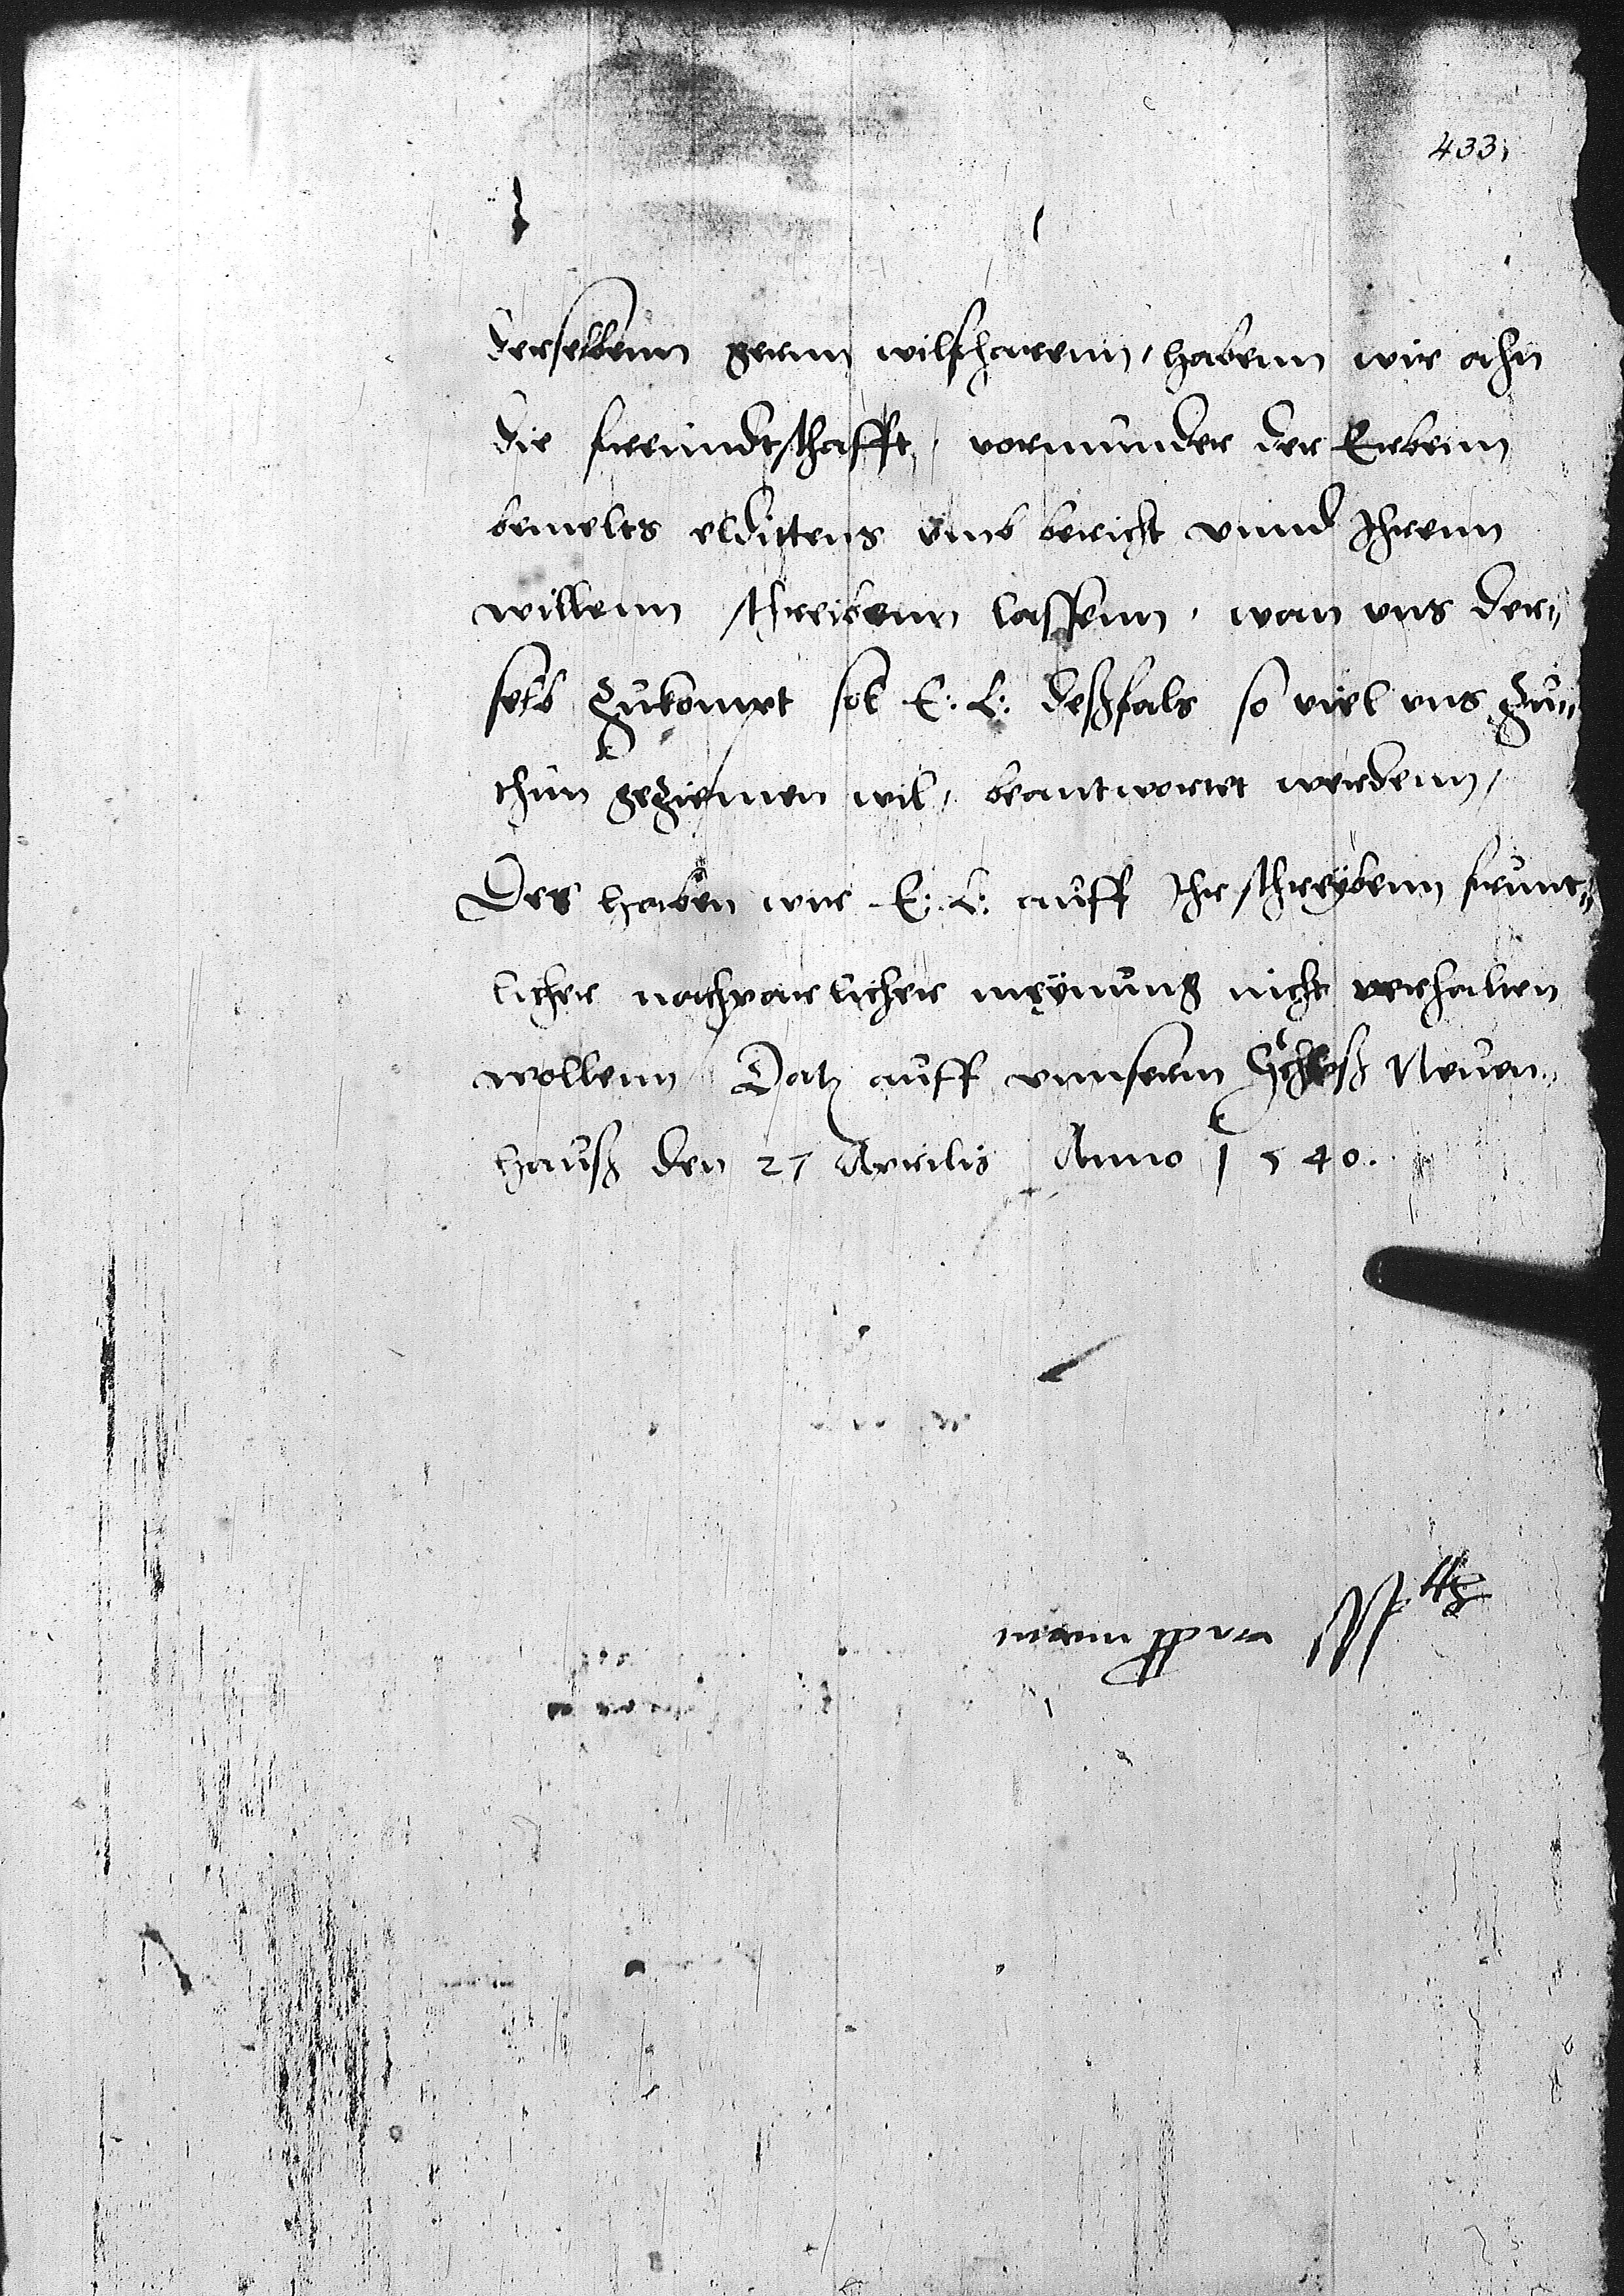 433
derselbenn gernn wilfharenn, habenn wir ahn
die freundtschafft, vormunder der Erbenn
bemelts eldittens vmb bericht vnnd Ihrenn
willenn schreibenn lassenn, wan vns der„
selb zukompt sol E: L: deßfals so viel vns zu„
thun geziemen wil, beantwortet werdenn,
Des haben wir E: L: auff Ihr schreybenn frunt„
licher nachparlicher meynung nicht verhalten
wollenn Datz auff vnnserm Schloß Neuen„
hauß den 27 Aprilis Anno 1540.
manu ppria